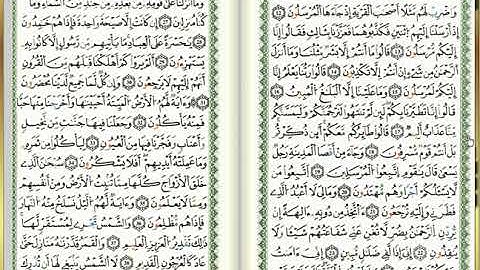 وَاضْرِبْ لَهُم مَّثَلًا أَصْحَٰبَ الْقَرْيَةِ إِذْ جَآءَهَا الْمُرْسَلُونَ ١٣
إِذْ أَرْسَلْنَآ إِلَيْهِمُ اثْنَيْنِ فَكَذَّبُوهُمَا فَعَزَّزْنَا بِثَالِثٍ فَقَالُوٓا۟ إِنَّآ
إِلَيْكُم مُّرْسَلُونَ ١٤ قَالُوا۟ مَآ أَنتُمْ إِلَّا بَشَرٌ مِّثْلُنَا وَمَآ أَنزَلَ
الرَّحْمَٰنُ مِن شَىْءٍ إِنْ أَنتُمْ إِلَّا تَكْذِبُونَ ١٥ قَالُوا۟ رَبُّنَا يَعْلَمُ إِنَّآ
إِلَيْكُمْ لَمُرْسَلُونَ ١٦ وَمَا عَلَيْنَآ إِلَّا الْبَلَٰغُ الْمُبِينُ ١٧
قَالُوٓا۟ إِنَّا تَطَيَّرْنَا بِكُمْ لَئِن لَّمْ تَنتَهُوا۟ لَنَرْجُمَنَّكُمْ وَلَيَمَسَّنَّكُم
مِّنَّا عَذَابٌ أَلِيمٌ ١٨ قَالُوا۟ طَٰٓئِرُكُم مَّعَكُمْ أَئِن ذُكِّرْتُم
بَلْ أَنتُمْ قَوْمٌ مُّسْرِفُونَ ١٩ وَجَآءَ مِنْ أَقْصَا الْمَدِينَةِ رَجُلٌ
يَسْعَىٰ قَالَ يَٰقَوْمِ اتَّبِعُوا۟ الْمُرْسَلِينَ ٢٠ اتَّبِعُوا۟ مَن
لَّا يَسْـَٔلُكُمْ أَجْرًا وَهُم مُّهْتَدُونَ ٢١ وَمَا لِىَ لَآ أَعْبُدُ الَّذِى
فَطَرَنِى وَإِلَيْهِ تُرْجَعُونَ ٢٢ ءَأَتَّخِذُ مِن دُونِهِۦٓ ءَالِهَةً إِن
يُرِدْنِ الرَّحْمَٰنُ بِضُرٍّ لَّا تُغْنِ عَنِّى شَفَٰعَتُهُمْ شَيْـًٔا وَلَا
يُنقِذُونِ ٢٣ إِنِّىٓ إِذًا لَّفِى ضَلَٰلٍ مُّبِينٍ ٢٤ إِنِّىٓ ءَامَنتُ
وَمَآ أَنزَلْنَا عَلَىٰ قَوْمِهِۦ مِنۢ بَعْدِهِۦ مِن جُندٍ مِّنَ السَّمَآءِ وَمَا
كُنَّا مُنزِلِينَ ٢٨ إِن كَانَتْ إِلَّا صَيْحَةً وَٰحِدَةً فَإِذَا هُمْ خَٰمِدُونَ
٢٩ يَٰحَسْرَةً عَلَى الْعِبَادِ مَا يَأْتِيهِم مِّن رَّسُولٍ إِلَّا كَانُوا۟ بِهِۦ
يَسْتَهْزِءُونَ ٣٠ أَلَمْ يَرَوْا۟ كَمْ أَهْلَكْنَا قَبْلَهُم مِّنَ الْقُرُونِ
أَنَّهُمْ إِلَيْهِمْ لَا يَرْجِعُونَ ٣١ وَإِن كُلٌّ لَّمَّا جَمِيعٌ لَّدَيْنَا مُحْضَرُونَ
٣٢ وَءَايَةٌ لَّهُمُ الْأَرْضُ الْمَيْتَةُ أَحْيَيْنَٰهَا وَأَخْرَجْنَا مِنْهَا حَبًّا
فَمِنْهُ يَأْكُلُونَ ٣٣ وَجَعَلْنَا فِيهَا جَنَّٰتٍ مِّن نَّخِيلٍ
وَأَعْنَٰبٍ وَفَجَّرْنَا فِيهَا مِنَ الْعُيُونِ ٣٤ لِيَأْكُلُوا۟ مِن ثَمَرِهِۦ
وَمَا عَمِلَتْهُ أَيْدِيهِمْ أَفَلَا يَشْكُرُونَ ٣٥ سُبْحَٰنَ الَّذِى
خَلَقَ الْأَزْوَٰجَ كُلَّهَا مِمَّا تُنۢبِتُ الْأَرْضُ وَمِنْ أَنفُسِهِمْ
وَمِمَّا لَا يَعْلَمُونَ ٣٦ وَءَايَةٌ لَّهُمُ الَّيْلُ نَسْلَخُ مِنْهُ النَّهَارَ
فَإِذَا هُم مُّظْلِمُونَ ٣٧ وَالشَّمْسُ تَجْرِى لِمُسْتَقَرٍّ لَّهَا
ذَٰلِكَ تَقْدِيرُ الْعَزِيزِ الْعَلِيمِ ٣٨ وَالْقَمَرَ قَدَّرْنَٰهُ مَنَازِلَ حَتَّىٰ
عَادَ كَالْعُرْجُونِ الْقَدِيمِ ٣٩ لَا الشَّمْسُ يَنۢبَغِى لَهَآ أَن تُدْرِكَ